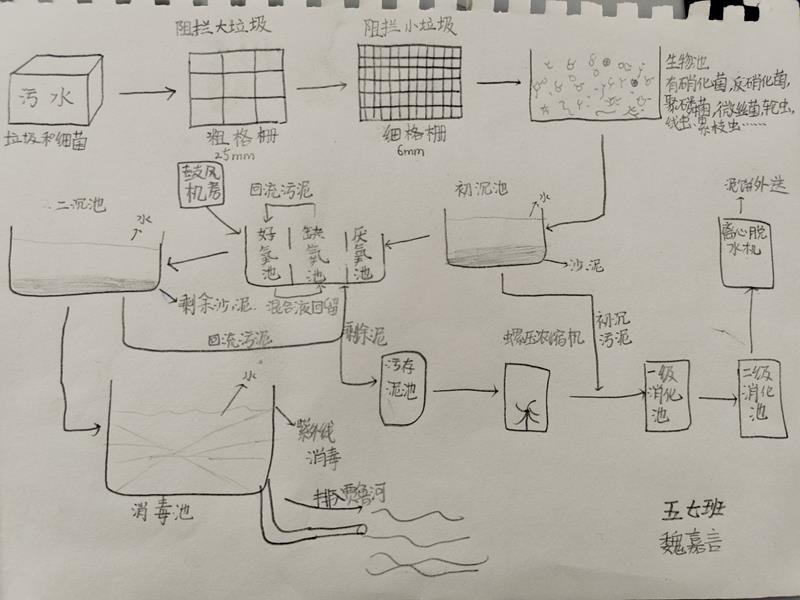 阻拦大垃圾
阻拦小垃圾
污水
垃圾和细菌
粗格栅
25mm
细格栅
6mm
生物池
有硝化菌,反硝化菌,
聚磷菌,微丝菌,轮虫,
线虫,累枝虫……
鼓风
机房
回流污泥
初沉池
二沉池
水
好氧池
缺氧池
厌氧池
水
沙泥
泥饼外送
离心脱
水机
剩余沙泥
混合液回留
回流污泥
剩余泥
初沉
污泥
污存
泥池
螺压浓缩机
一级
消化
池
二级
消化
池
水
紫外线
消毒
消毒池
排入贾鲁河
五七班
魏嘉言